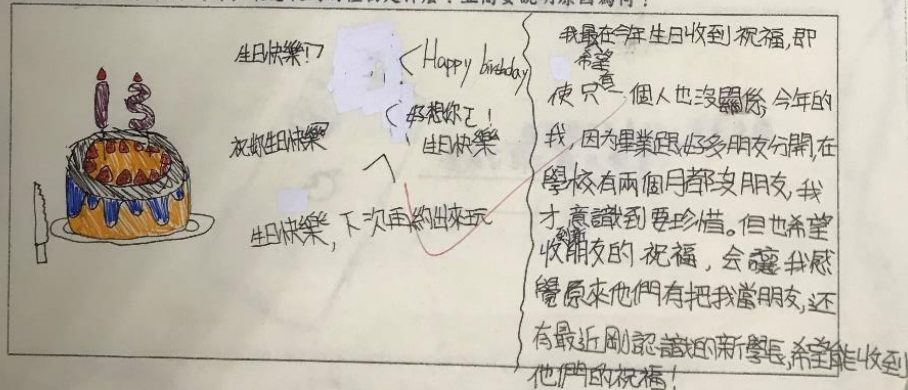 生日快樂!
Happy birthday
好想你了!
生日快樂
祝妳生日快樂
生日快樂,下次再約出來玩
13
我最希望在今年生日收到祝福,即
使只有一個人也沒關係,今年的
我,因为畢業跟好多朋友分開,在
學校有兩個月都沒朋友,我
才意識到要珍惜。但也希望
收到新朋友的祝福,会讓我感
覺原來他們有把我當朋友,还
有最近剛認識的新學長,希望能收到
他們的祝福!